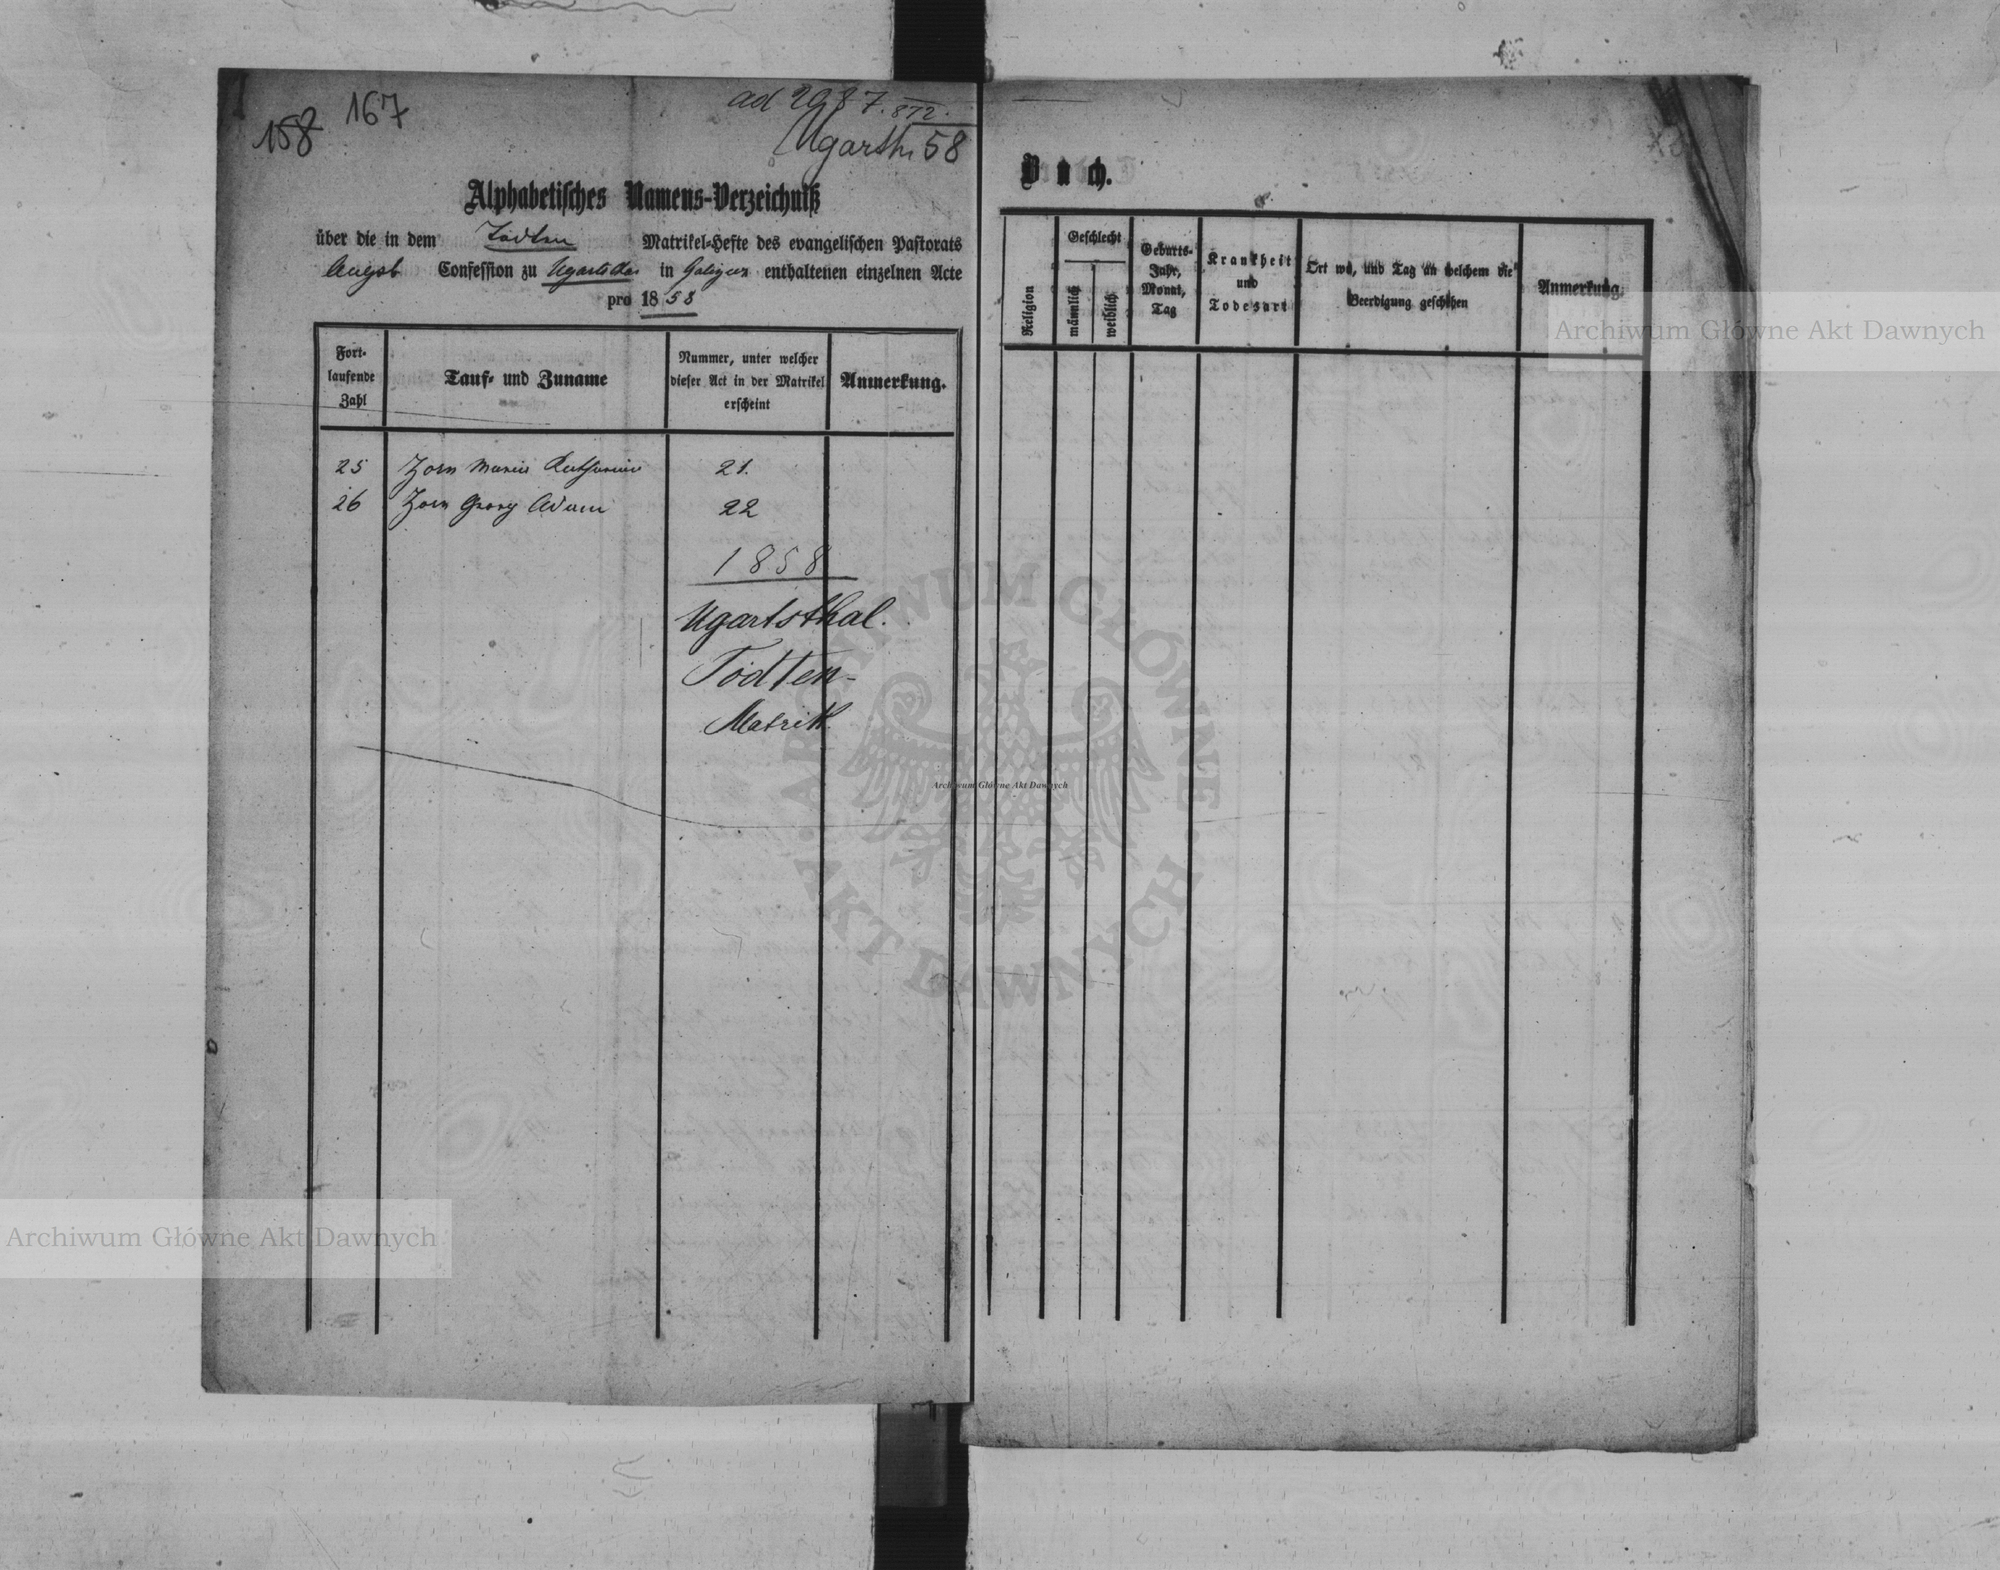 158
167
ad 2987. 872.
Ugarth. 58
Alphabetisches Namens-Verzeichniß
über die in dem Todten Matrikel-Hefte des evangelischen Pastorats
Augsb Confession zu in enthaltenen einzelnen Acte
pro 1858
Fort-
laufende
Zahl
Tauf- und Zuname
Nummer, unter welcher
dieser Act in der Matrikel
erscheint
Anmerkung.
25 Zorn Maria Katharina 21.
26 Zorn Georg Adam 22
1858
Ugartsthal.
Todten-
Matrik
B u ch.
Religion
Geschlecht
männlich
weiblich
Geburts-
Jahr,
Monat,
Tag
Krankheit
und
Todesart
Ort wo, und Tag an welchem die
Beerdigung geschehen
Anmerkung.
Archiwum Główne Akt Dawnych
ARCHIWUM GŁÓWNE
AKT DAWNYCH
Archiwum Główne Akt Dawnych
Archiwum Główne Akt Dawnych